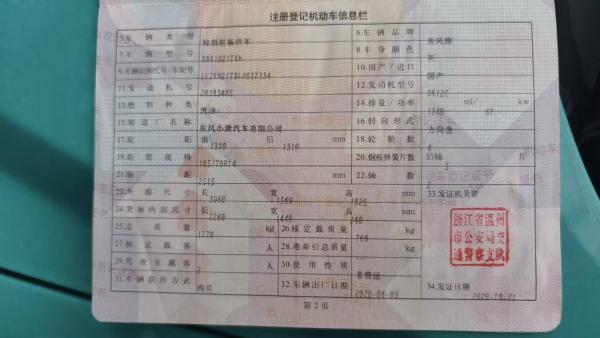 注册登记机动车信息栏
5.车辆类型 轻型栏板货车 6.车辆品牌 东风牌
7.车辆型号 8.车身颜色 灰
9.车辆识别代号/车架号 10.国产/进口 国产
11.发动机号 20383485 12.发动机型号 DK12C
13.燃料种类 汽油 14.排量/功率 1240 ml/ 67 kw
15.制造厂名称 东风小康汽车有限公司 16.转向形式 方向盘
17.轮距 前 1310 后 1310 mm 18.轮胎数 4
19.轮胎规格 165/70R14 20.钢板弹簧片数 后轴 5 片
21.轴距 2515 mm 22.轴数 2
23.外廓尺寸 长 宽 1560 高 1825 mm 33.发证机关章
24.货厢内部尺寸 长 2260 宽 1440 高 mm
25.总质量 1770 kg 26.核定载质量 760 kg
27.核定载客 人 28.准牵引总质量 kg
29.驾驶室载客 2 人 30.使用性质 非营运
31.车辆获得方式 购买 32.车辆出厂日期 2020-06-09 34.发证日期
浙江省温州
市公安局交
通警察支队
第2页